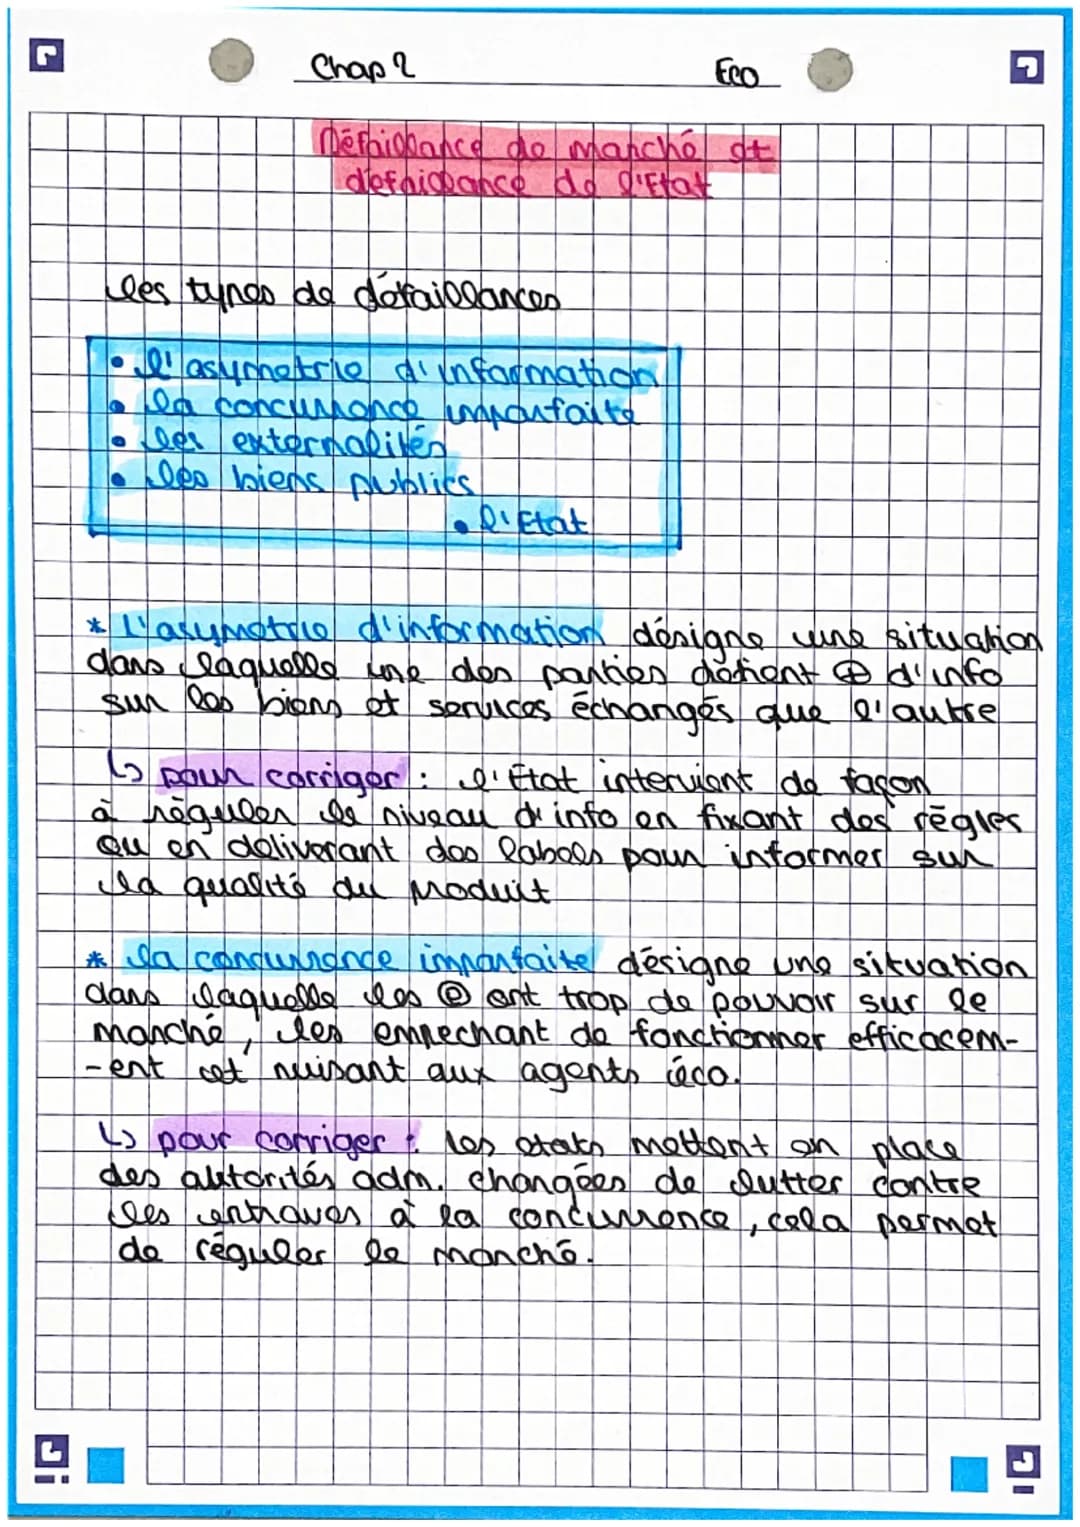 Chap 2 Eco
Défaillance de marché et
défaillance de l'Etat
les types de défaillances
• l'asymetrie d'information
• la concurrence imparfaite
• les externalités
• les biens publics
• l'Etat
* L'asymetrie d'information désigne une situation
dans laquelle une des parties détient ⊕ d'info
sur les biens et services échangés que l'autre
↳ pour corriger : l'État intervient de façon
à réguler le niveau d'info en fixant des règles
ou en déliverant des labels pour informer sur
la qualité du produit
* la concurrence imparfaite désigne une situation
dans laquelle les ⓔ ont trop de pouvoir sur le
marché, les empechant de fonctionner efficacem-
-ent et nuisant aux agents éco.
↳ pour corriger : les etats mettent en place
des autorités adm. chargées de lutter contre
les entraves à la concurrence, cela permet
de réguler le marché.